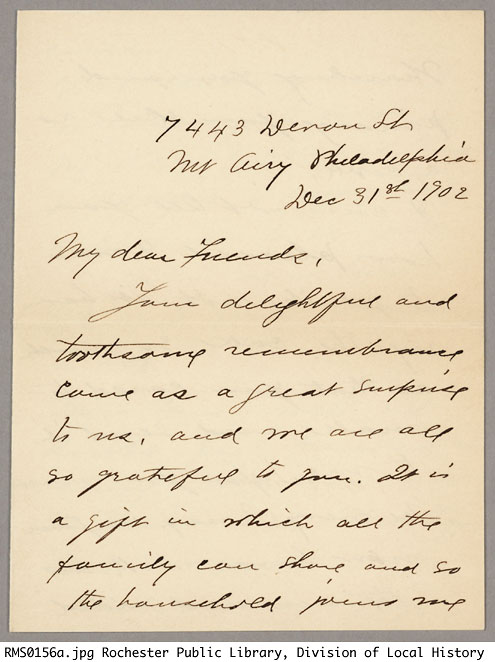 7443 Devon St
Mt Airy Philadelphia
Dec 31st 1902
My dear Friends,
Your delightful and
toothsome remembrance
came as a great surprise
to us, and we are all
so grateful to you. It is
a gift in which all the
family can share and so
the household joins me
RMS0156a.jpg Rochester Public Library, Division of Local History